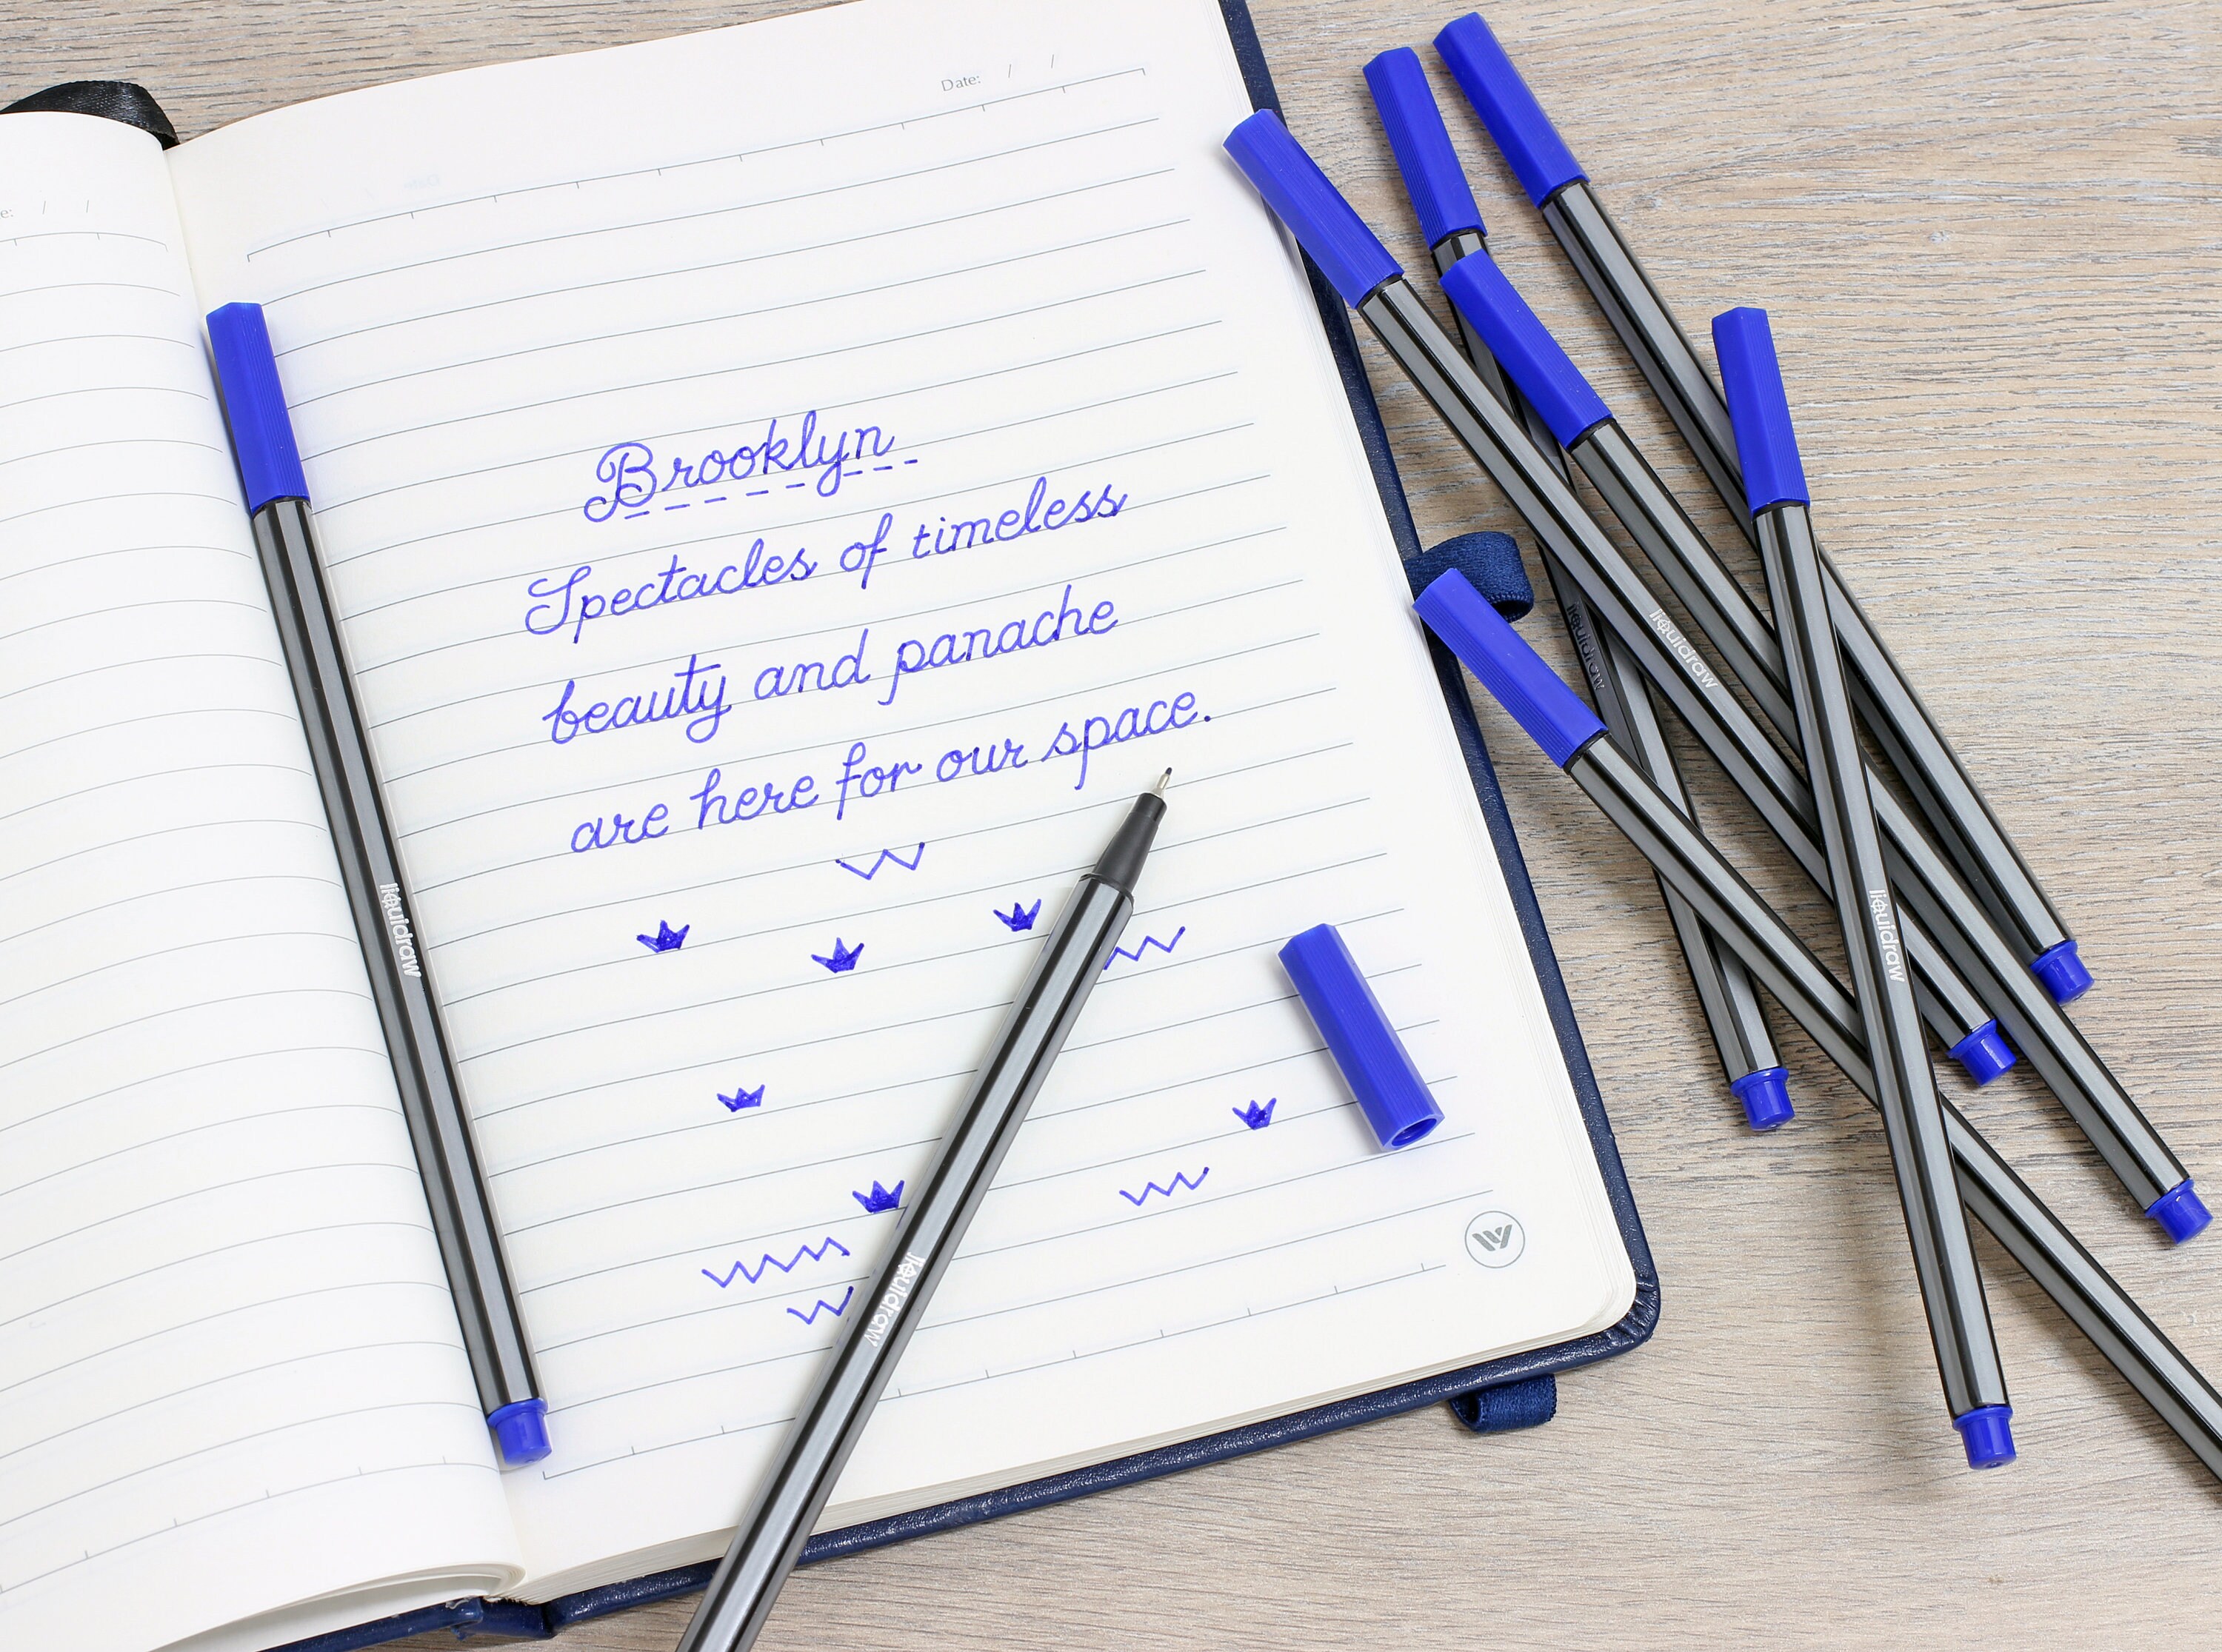 Date: / /
e: / /
Brooklyn
Spectacles of timeless
beauty and panache
are here for our space.
liquidraw
liquidraw
liquidraw
liquidraw
liquidraw